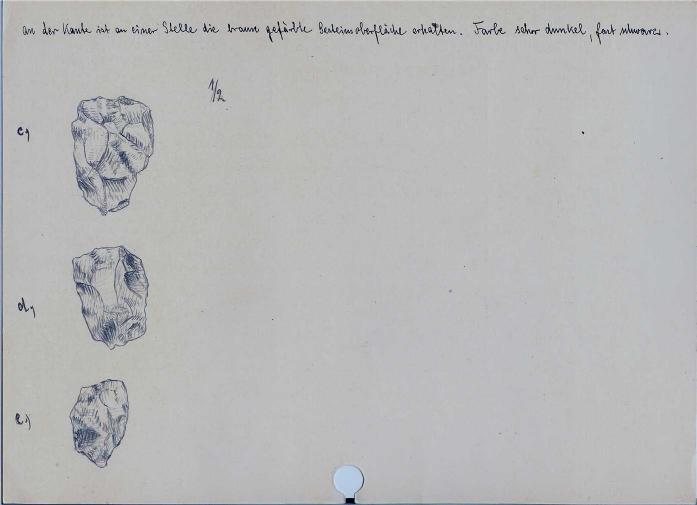 an der Kante ist an einer Stelle die braun gefärbte Gesteinsoberfläche erhalten. Farbe sehr dunkel, fast schwarz.
1/2
c,
d,
e,